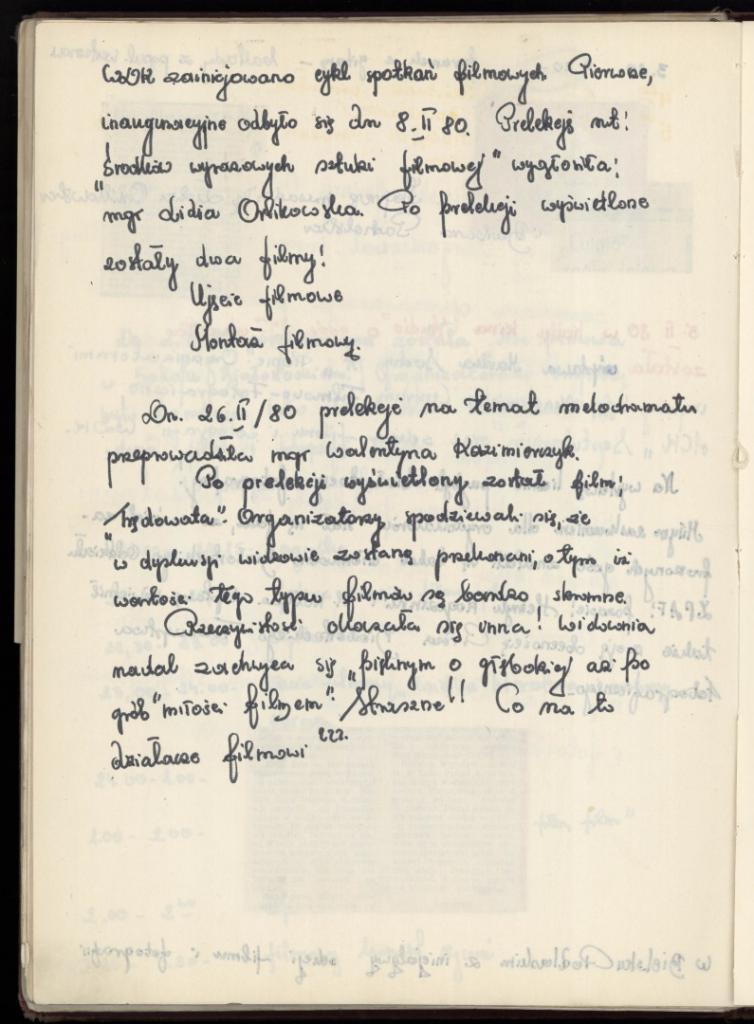 WDK zainicjowano cykl spotkań filmowych. Pierwsze,
inauguracyjne odbyło się dn 8.II 80. Prelekcję nt:
"Środków wyrazowych sztuki filmowej" wygłosiła:
mgr Lidia Orlikowska. Po prelekcji wyświetlone
zostały dwa filmy:
Ujęcie filmowe
Montaż filmowy.
Dn. 26.II/80 prelekcję na temat melodramatu
przeprowadziła mgr Walentyna Kazimierczyk.
Po prelekcji wyświetlony został film:
"Trędowata". Organizatorzy spodziewali się, że
w dyskusji widzowie zostaną przekonani, o tym iż
wartości tego typu filmów są bardzo skromne.
Rzeczywistość okazała się inna! Widownia
nadal zachwyca się "pięknym o głębokiej aż po
grób" miłości filmem". Straszne!! Co na to
działacze filmowi ???.